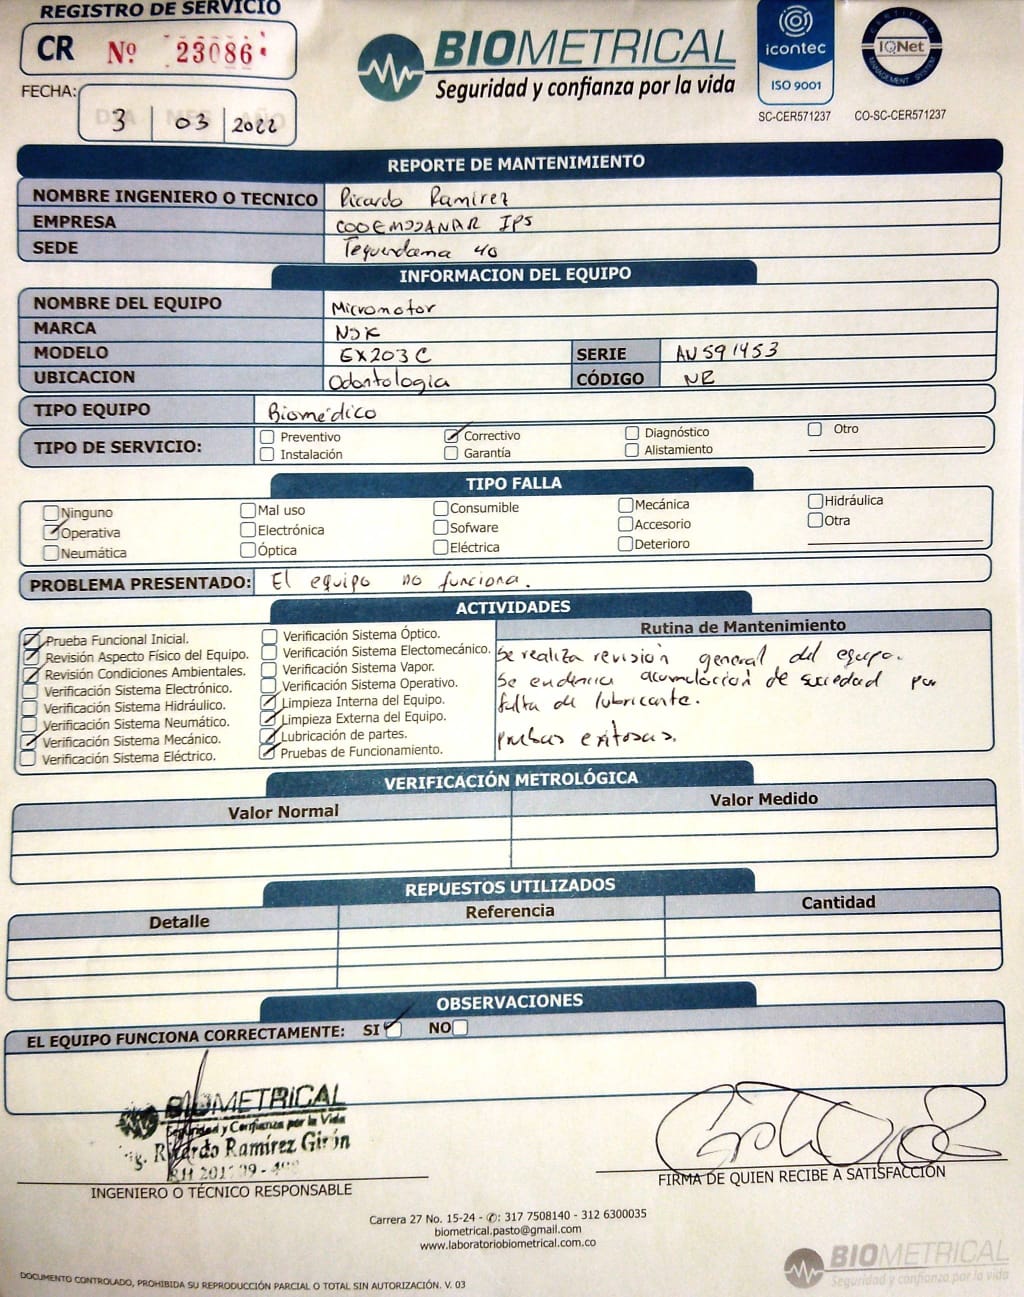 REGISTRO DE SERVICIO
CR Nº 23086
FECHA: 3 03 2022
BIOMETRICAL
Seguridad y confianza por la vida
icontec
ISO 9001
SC-CER571237
CERTIFIED
IQNet
MANAGEMENT SYSTEM
CO-SC-CER571237
REPORTE DE MANTENIMIENTO
NOMBRE INGENIERO O TECNICO Ricardo Ramirez
EMPRESA COOEMSSANAR IPS
SEDE Tequendama 40
INFORMACION DEL EQUIPO
NOMBRE DEL EQUIPO Micromotor
MARCA NSK
MODELO EX203C SERIE AU591453
UBICACION Odontologia CÓDIGO NR
TIPO EQUIPO Biomédico
TIPO DE SERVICIO:
Preventivo Correctivo Diagnóstico Otro
Instalación Garantía Alistamiento
TIPO FALLA
Ninguno Mal uso Consumible Mecánica Hidráulica
Operativa Electrónica Sofware Accesorio Otra
Neumática Óptica Eléctrica Deterioro
PROBLEMA PRESENTADO: El equipo no funciona.
ACTIVIDADES
Prueba Funcional Inicial.
Revisión Aspecto Físico del Equipo.
Revisión Condiciones Ambientales.
Verificación Sistema Electrónico.
Verificación Sistema Hidráulico.
Verificación Sistema Neumático.
Verificación Sistema Mecánico.
Verificación Sistema Eléctrico.
Verificación Sistema Óptico.
Verificación Sistema Electomecánico.
Verificación Sistema Vapor.
Verificación Sistema Operativo.
Limpieza Interna del Equipo.
Limpieza Externa del Equipo.
Lubricación de partes.
Pruebas de Funcionamiento.
Rutina de Mantenimiento
Se realiza revisión general del equipo.
Se evidencia acumulación de suciedad por
falta de lubricante.
pruebas exitosas.
VERIFICACIÓN METROLÓGICA
Valor Normal Valor Medido
REPUESTOS UTILIZADOS
Detalle Referencia Cantidad
OBSERVACIONES
EL EQUIPO FUNCIONA CORRECTAMENTE: SI NO
BIOMETRICAL
Seguridad y Confianza por la Vida
Ing. Ricardo Ramírez Girón
INGENIERO O TÉCNICO RESPONSABLE
FIRMA DE QUIEN RECIBE A SATISFACCIÓN
Carrera 27 No. 15-24 - ✆: 317 7508140 - 312 6300035
biometrical.pasto@gmail.com
www.laboratoriobiometrical.com.co
BIOMETRICAL
Seguridad y confianza por la vida
DOCUMENTO CONTROLADO, PROHIBIDA SU REPRODUCCIÓN PARCIAL O TOTAL SIN AUTORIZACIÓN. V. 03